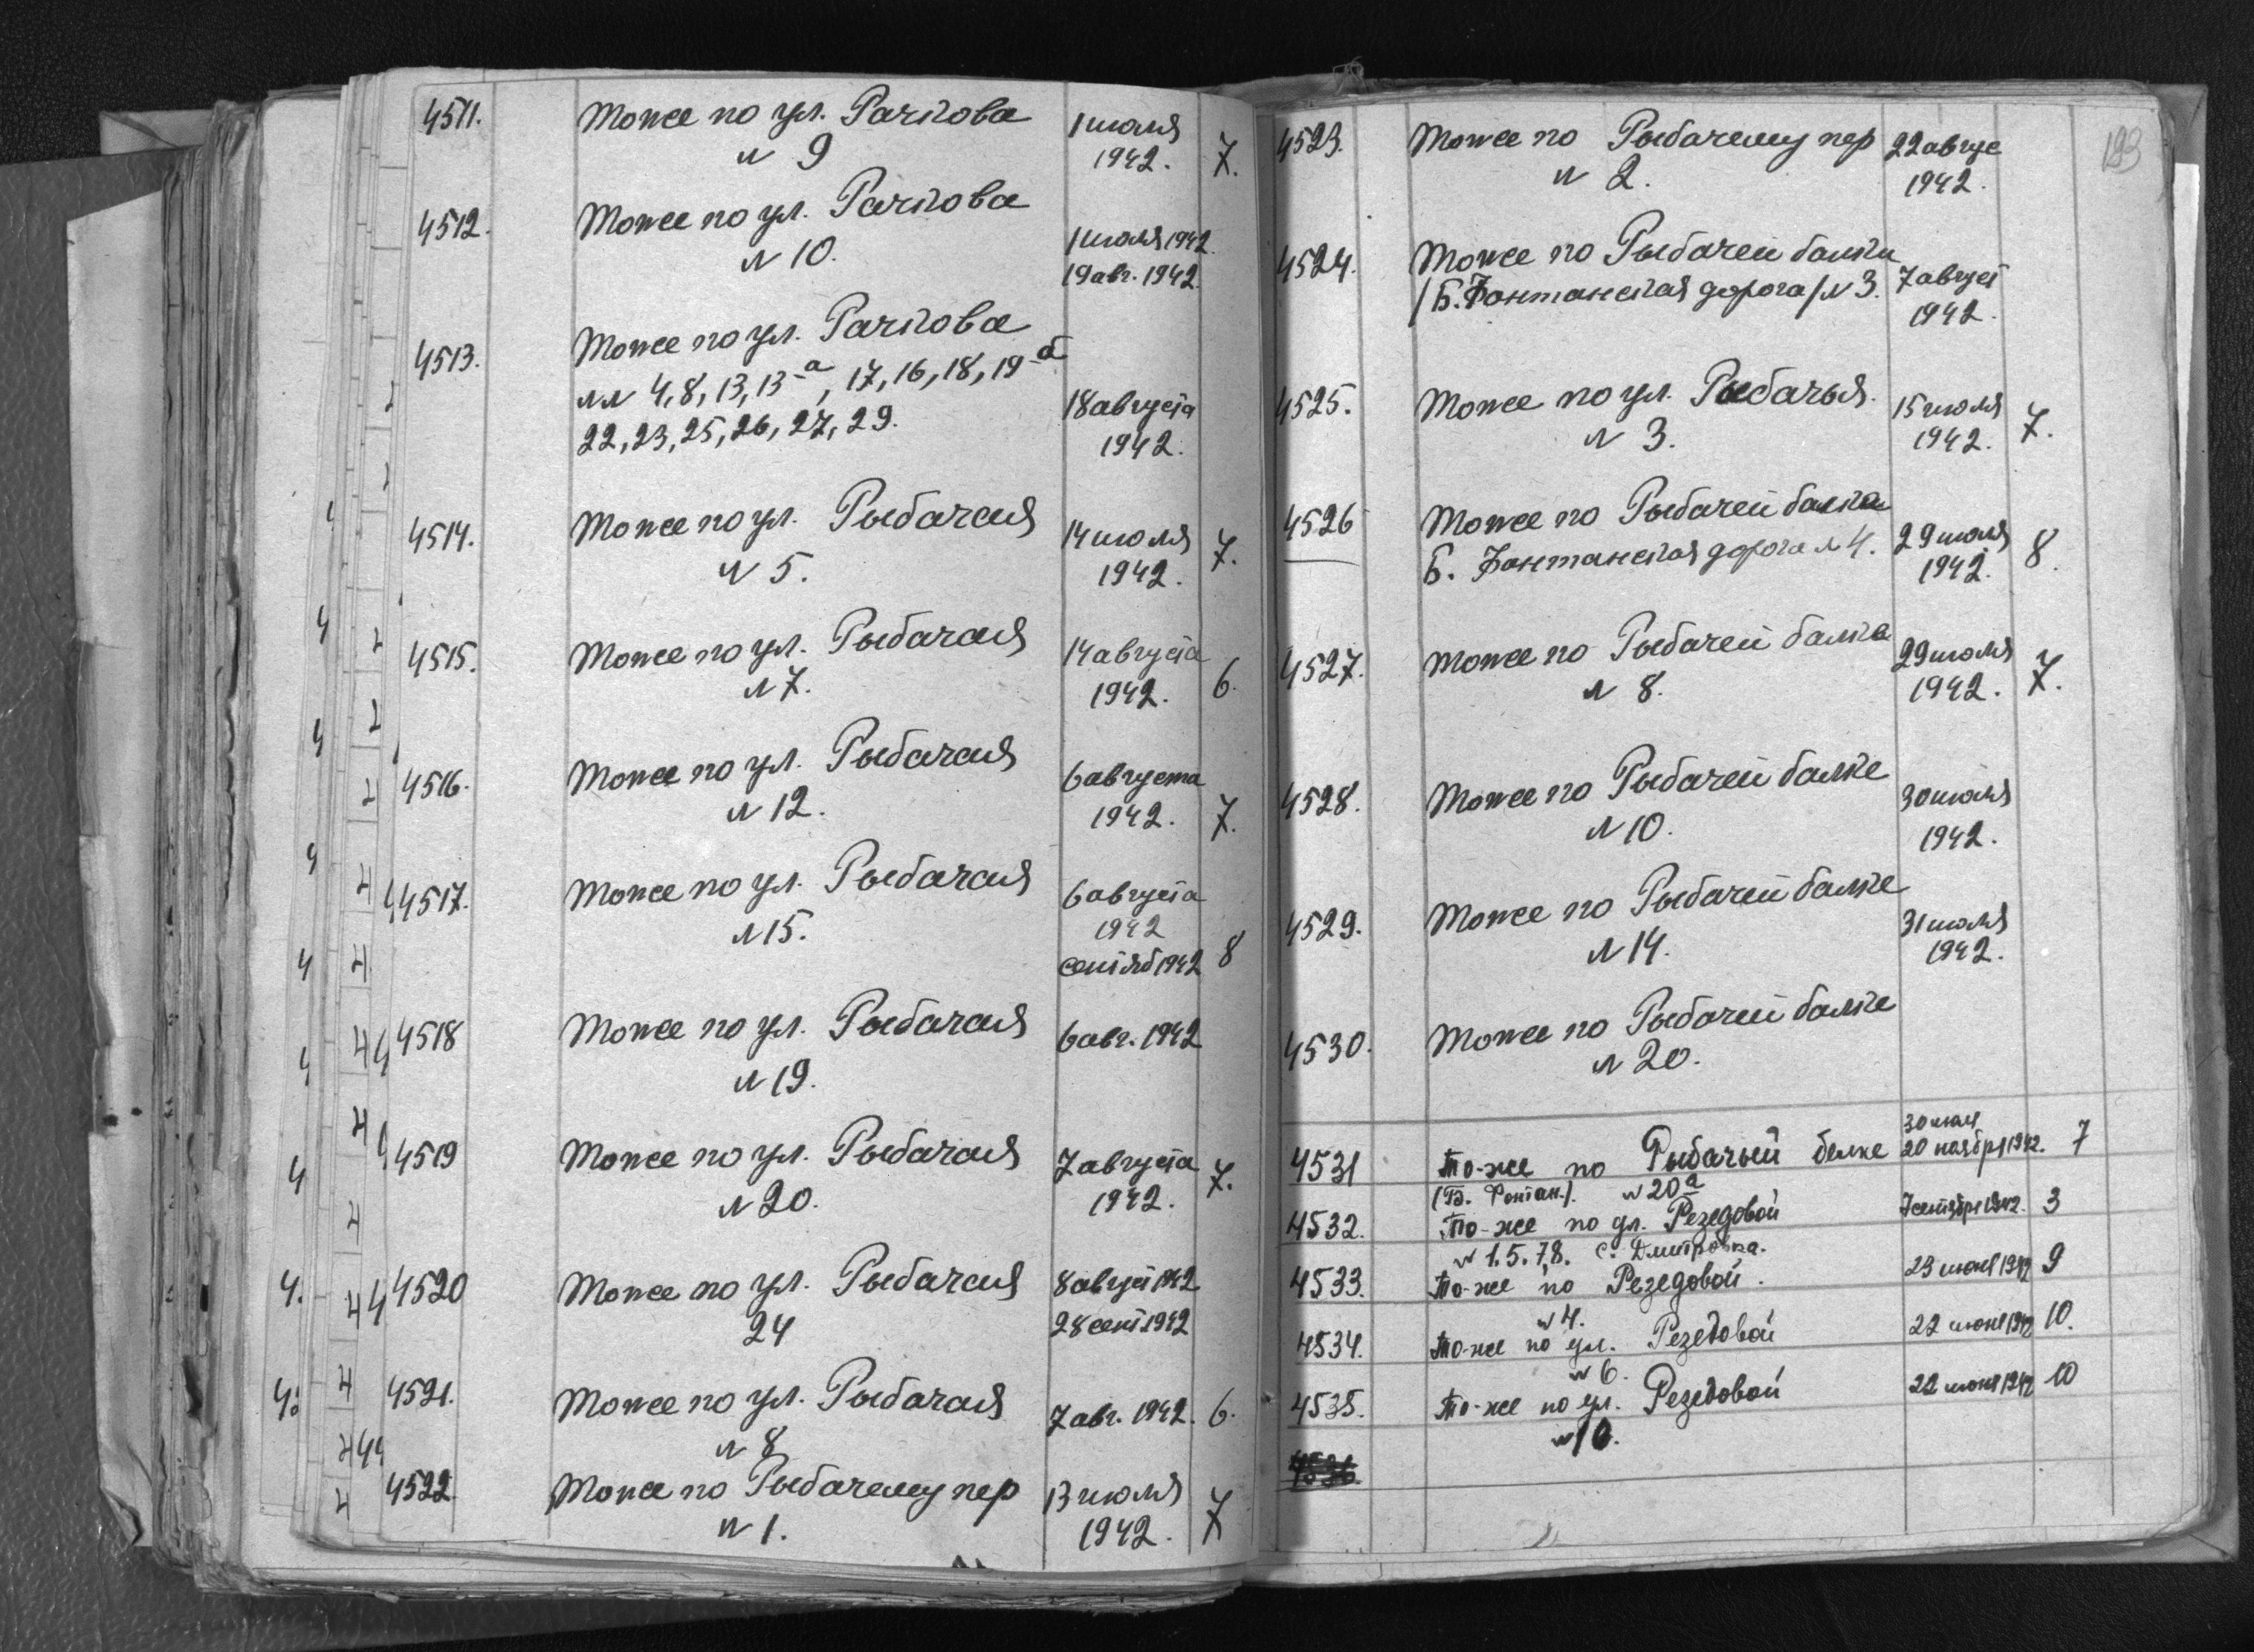 4511. Тоже по ул. Рачкова 1 июля
№ 9 1942. 7.
4512. Тоже по ул. Рачкова
№ 10. 1 июля 1942
19 авг. 1942.
4513. Тоже по ул. Рачкова
№№ 4, 8, 13, 13-а, 17, 16, 18, 19-а
22, 23, 25, 26, 27, 29. 18 августа
1942.
4514. Тоже по ул. Рыбачая 14 июля
№ 5. 1942. 7.
4515. Тоже по ул. Рыбачая 14 августа
№ 7. 1942. 6.
4516. Тоже по ул. Рыбачая 6 августа
№ 12. 1942. 7.
4517. Тоже по ул. Рыбачая 6 августа
№ 15. 1942
сентяб 1942 8
4518 Тоже по ул. Рыбачая 6 авг. 1942
№ 19.
4519 Тоже по ул. Рыбачая 7 августа
№ 20. 1942. 7.
4520 Тоже по ул. Рыбачая 8 август 1942
24 28 сент 1942
4521. Тоже по ул. Рыбачая 7 авг. 1942. 6.
№ 8
4522 Тоже по Рыбачему пер 13 июля
№ 1. 1942. 7
193
4523. Тоже по Рыбачему пер 22 авгус
№ 2. 1942.
4524. Тоже по Рыбачей балки
/Б. Фонтанская дорога/ № 3. 7 август
1942.
4525. Тоже по ул. Рыбачья. 15 июля
№ 3. 1942. 7.
4526 Тоже по Рыбачей балка
Б. Фонтанская дорога № 4. 29 июля
1942. 8.
4527. Тоже по Рыбачей балка 29 июля
№ 8. 1942. 7.
4528. Тоже по Рыбачей балке 30 июля
№ 10. 1942.
4529. Тоже по Рыбачей балке 31 июля
№ 14. 1942.
4530. Тоже по Рыбачей балке
№ 20.
30 июля
4531 То-же по Рыбачьей балке 20 ноября 1942. 7
(Б. Фонтан.). № 20а
4532. То-же по ул. Резедовой 7 сентября 1942. 3
№ 1. 5. 7, 8. с. Дмитровка.
4533. То-же по Резедовой. 23 июня 1942 9
№ 4.
4534. То-же по ул. Резедовой 22 июня 1942 10.
№ 6.
4535. То-же по ул. Резедовой 22 июня 1942 10
№ 10.
4536.